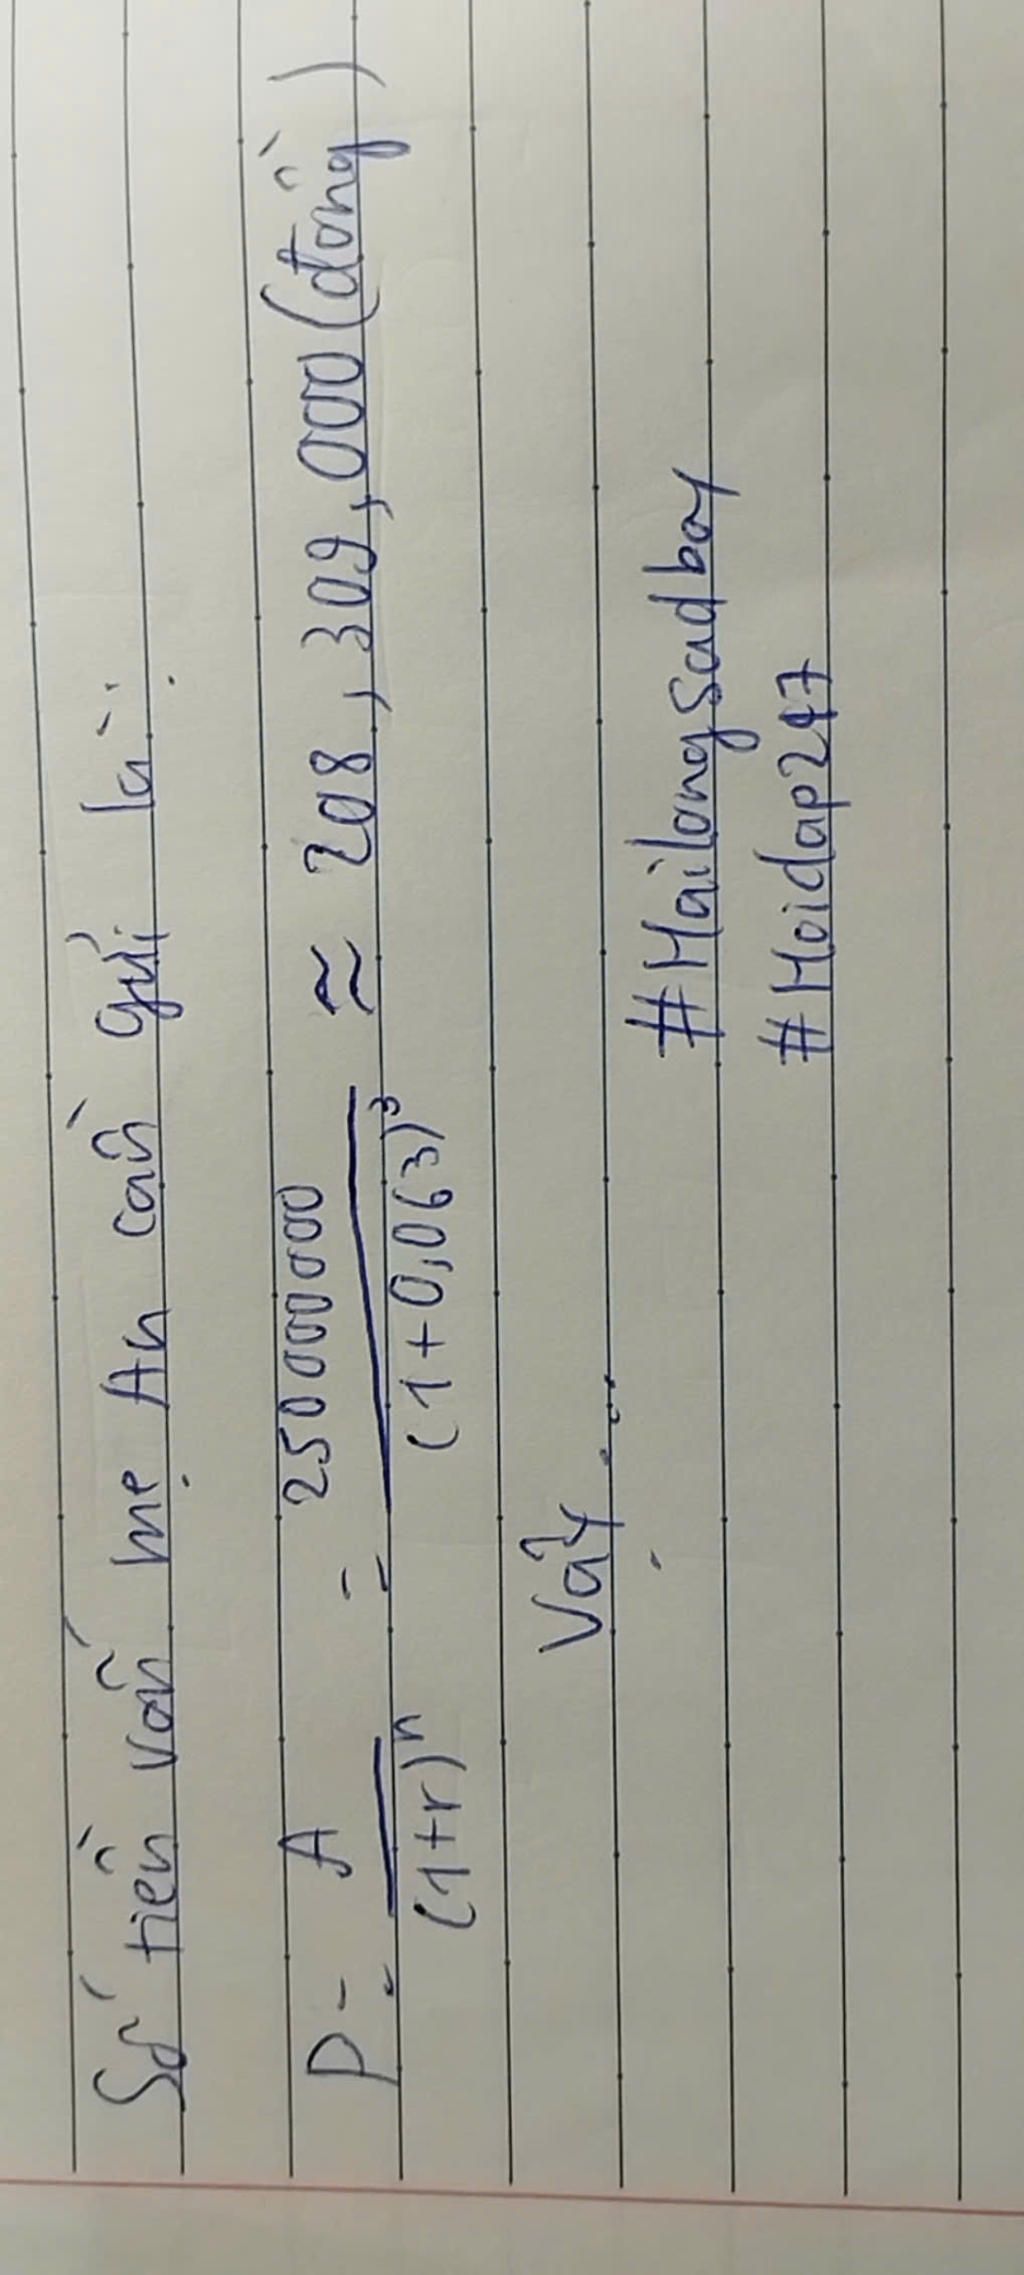 Số tiền vốn mẹ An cần gửi là:
P = A / (1+r)^n = 250000000 / (1+0,063)^3 ≈ 208,309,000 (đồng)
Vậy ...
#Mailongsadboy
#Hoidap247